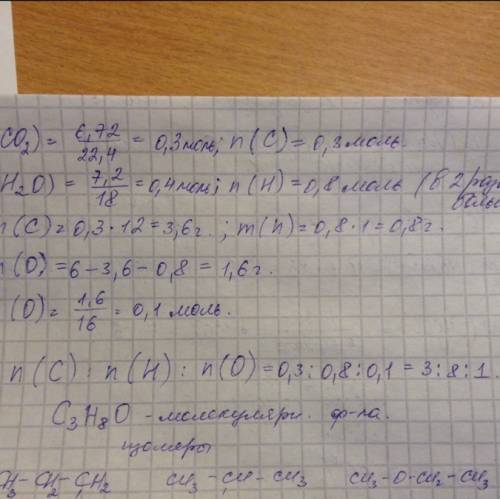 CO₂) = 6,72/22,4 = 0,3 моль; n(C) = 0,3 моль.
H₂O) = 7,2/18 = 0,4 моль; n(H) = 0,8 моль (в 2 раза
(C) = 0,3·12 = 3,6 г.; m(h) = 0,8·1 = 0,8 г.
(O) = 6-3,6-0,8 = 1,6 г.
(O) = 1,6/16 = 0,1 моль.
n(C) : n(H) : n(O) = 0,3 : 0,8 : 0,1 = 3 : 8 : 1.
C₃H₈O - молекулярн. ф-ла.
изомеры
CH₃-CH₂-CH₂ CH₃-CH-CH₃ CH₃-O-CH₂-CH₃